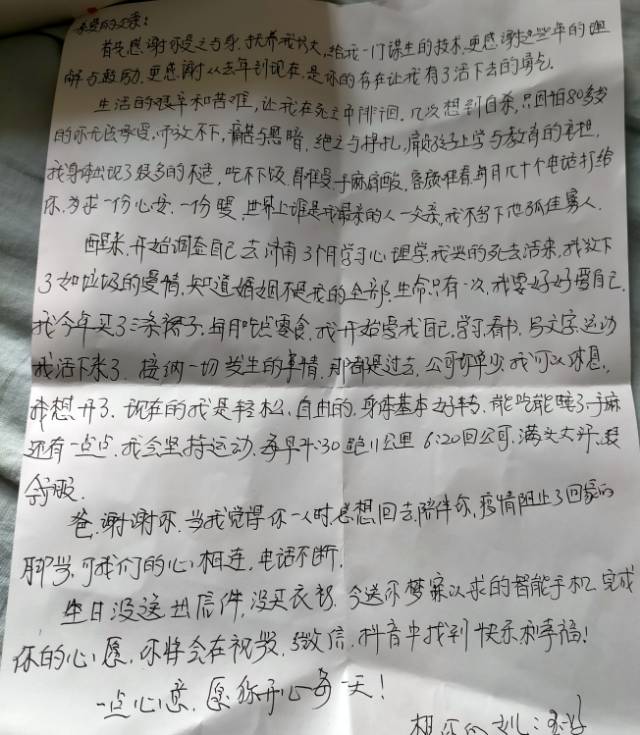 亲爱的父亲：
首先感谢你爱之与身，抚养我成大，给我一门谋生的技术，更感谢这些年的理
解与鼓励，更感谢从去年到现在，是你的存在让我有了活下去的勇气。
生活的艰辛和苦难，让我在死亡中徘徊，几次想到自杀，只因怕80多岁
的你无法承受，叫放不下，痛苦与黑暗，绝望与挣扎，孩子上学与教育的重担，
我身体出现了很多的不适，吃不下饭，手麻肩酸，每月几十个电话打给
你，为求一份心安，一份暖，世界上谁是我最亲的人－父亲，我不留下他孤住寡人。
醒来，开始调查自己去济南3个月学习心理学，我哭的死去活来，我放下
了如垃圾的爱情，知道婚姻不是我的全部，生命只有一次，我要好好爱自己，
我今年买了三条裙子，每月吃点零食，我开始爱我自己，学习看书，写文字，运动
我活下来了，接纳一切发生的事情，那都是过去，公司订单少，我可以休息，
我想开了，现在的我是轻松，自由的，身体基本好转，能吃能睡了，手麻
还有一点点，我会坚持运动，每早4:30跑11公里 6:20回公司，满头大汗，很
舒服。
爸，谢谢你，当我觉得你一人时总想回去陪伴你，疫情阻止了回家的
脚步，可我们的心相连，电话不断。
生日没送出信件，没买衣服，今送你梦寐以求的智能手机，完成
你的心愿，你将会在视频，微信，抖音中找到快乐和幸福！
一点心意，愿你开心每一天！
想你的女儿：